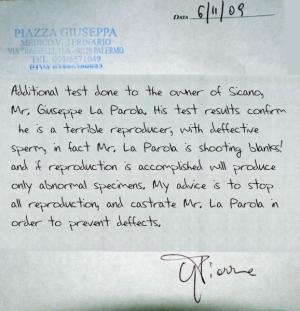 DATA 6/11/09
PIAZZA GIUSEPPA
MEDICO VETERINARIO
PALERMO
TEL.
Additional test done to the owner of Sicano,
Mr. Giuseppe La Parola. His test results confirm
he is a terrible reproducer, with deffective
sperm, in fact Mr. La Parola is shooting blanks!
and if reproduction is accomplished will produce
only abnormal specimens. My advice is to stop
all reproduction, and castrate Mr. La Parola in
order to prevent deffects.